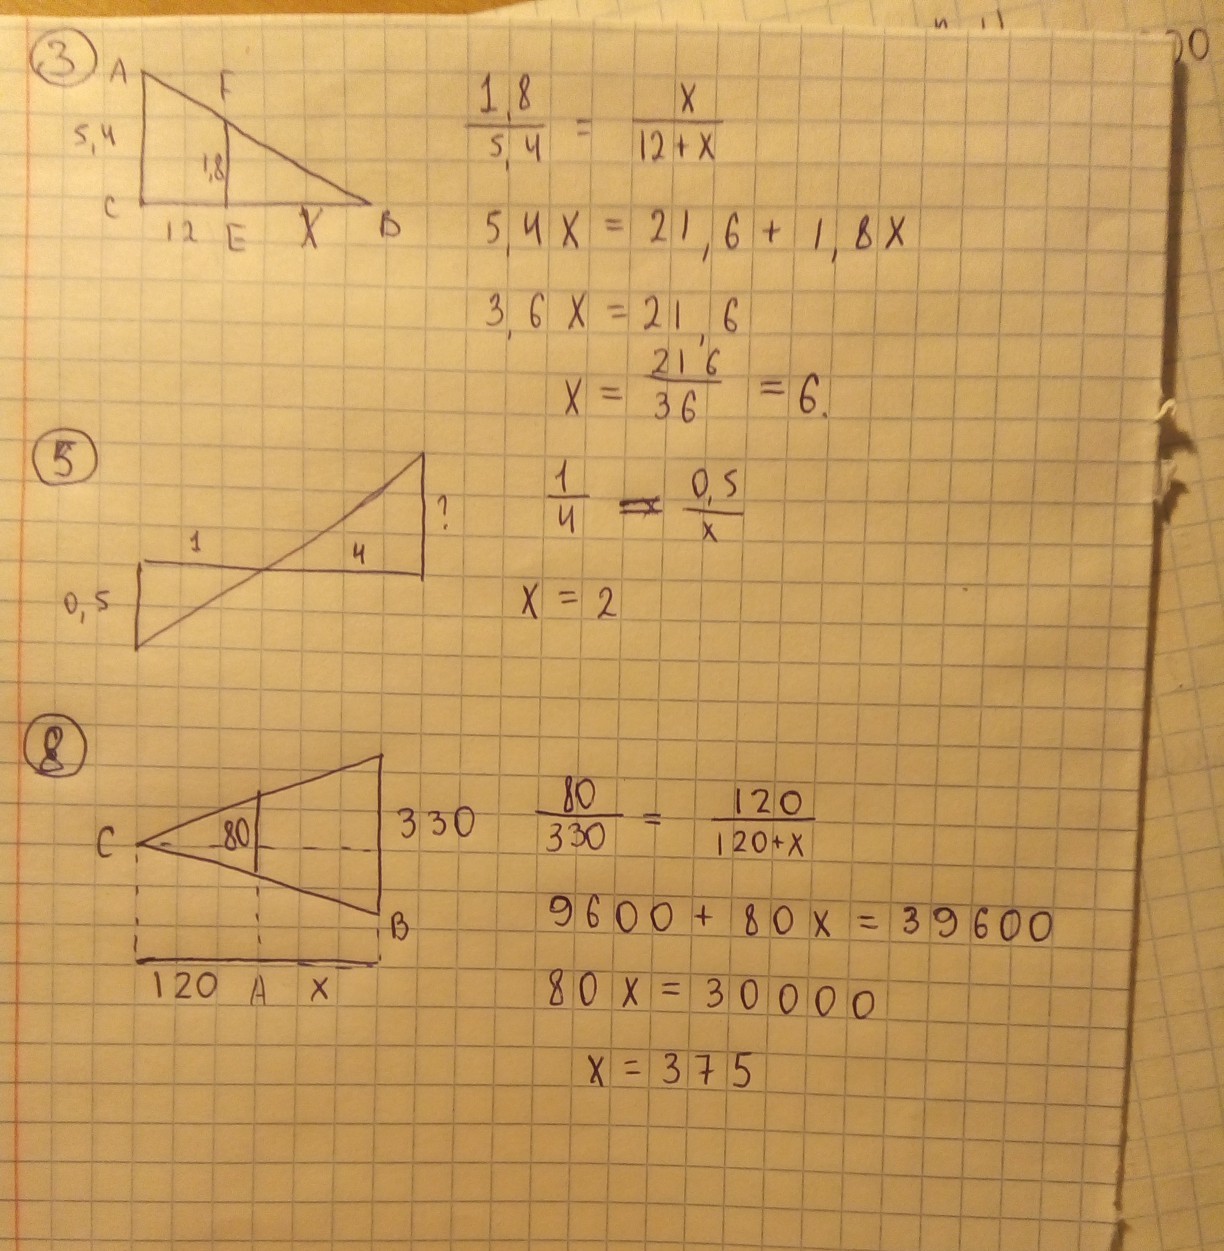 3
A
F
5,4
1,8
C
12
E
X
B
1,8/5,4 = x/(12+x)
5,4x = 21,6 + 1,8x
3,6x = 21,6
x = 216/36 = 6.
5
1
4
?
0,5
1/4 = 0,5/x
x = 2
8
C
80
330
B
120 A x
80/330 = 120/(120+x)
9600 + 80x = 39600
80x = 30000
x = 375